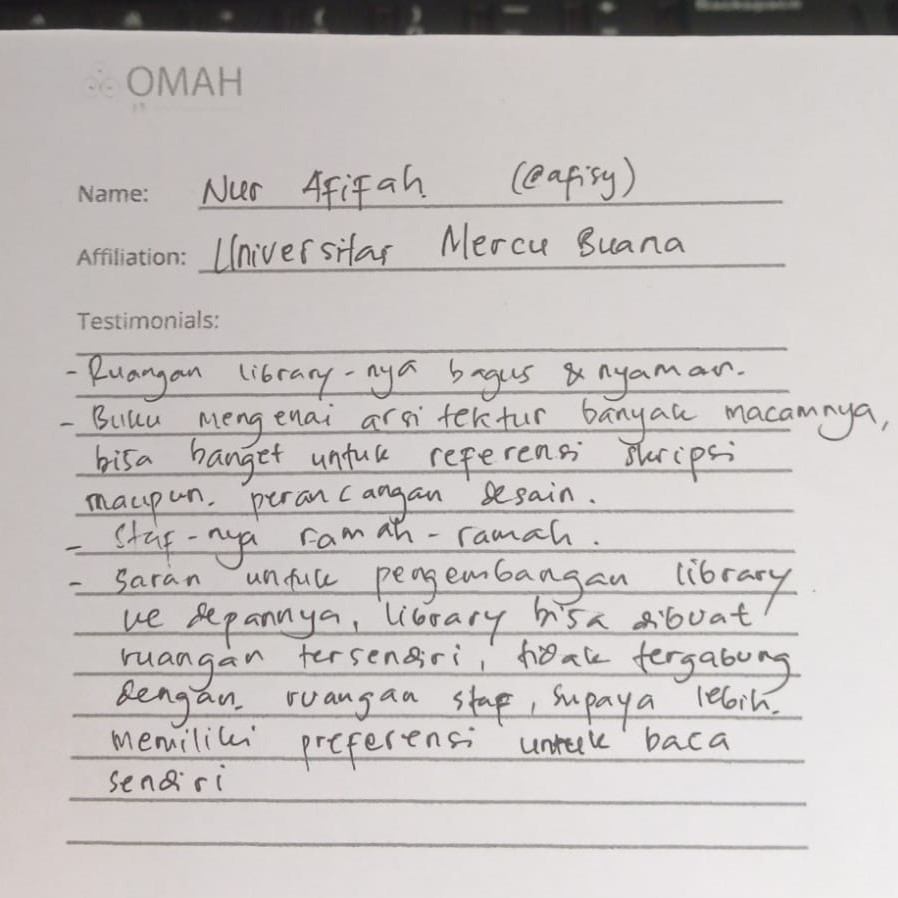 OMAH
Name: Nur Afifah (@afisy)
Affiliation: Universitas Mercu Buana
Testimonials:
- Ruangan library-nya bagus & nyaman.
- Buku mengenai arsitektur banyak macamnya,
bisa banget untuk referensi skripsi
maupun perancangan desain.
- Staf-nya ramah-ramah.
- Saran untuk pengembangan library
ke depannya, library bisa dibuat
ruangan tersendiri, tidak tergabung
dengan ruangan staf, supaya lebih
memiliki preferensi untuk baca
sendiri